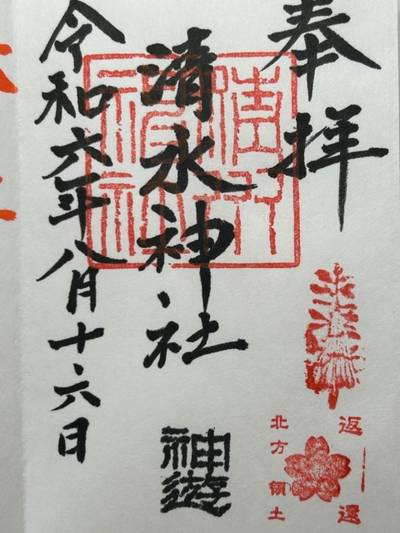 奉拝
清水神社
令和六年八月十六日
神遊
返還
北方領土